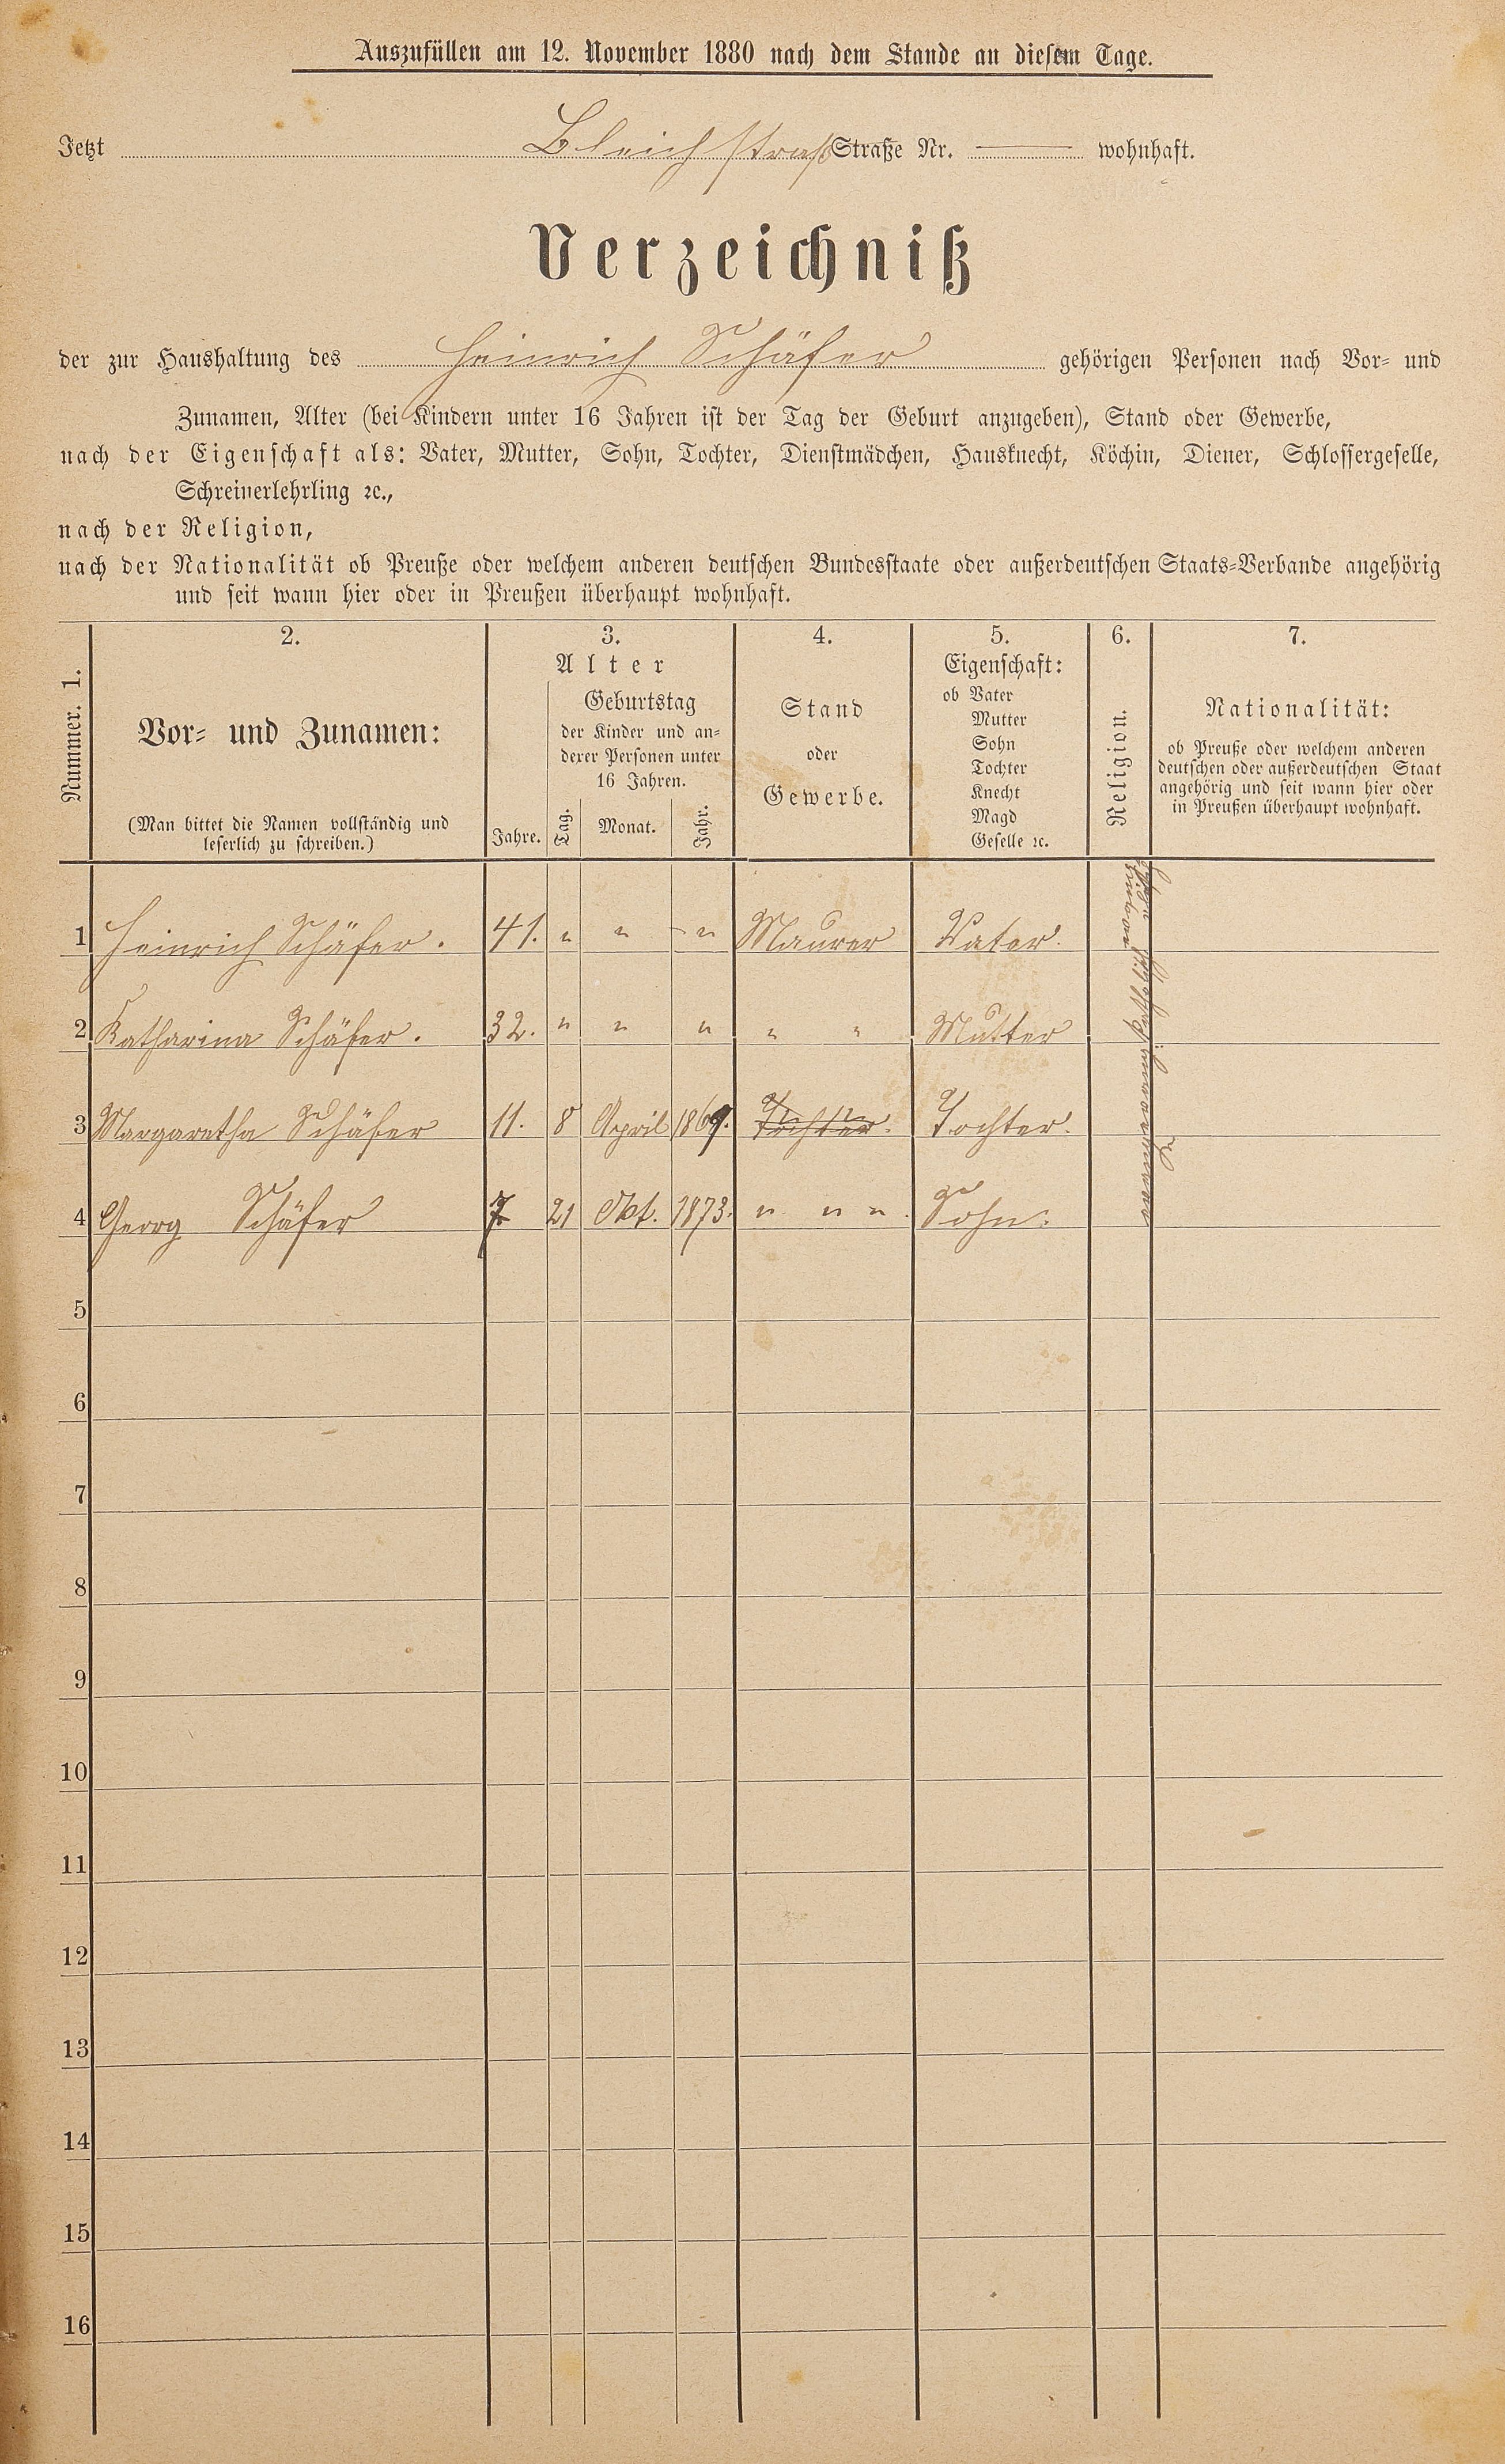 Auszufüllen am 12. November 1880 nach dem Stande an diesem Tage.
Jetzt Bleichstraß Straße Nr. — wohnhaft.
Verzeichniß
der zur Haushaltung des Heinrich Schäfer gehörigen Personen nach Vor- und
Zunamen, Alter (bei Kindern unter 16 Jahren ist der Tag der Geburt anzugeben), Stand oder Gewerbe,
nach der Eigenschaft als: Vater, Mutter, Sohn, Tochter, Dienstmädchen, Hausknecht, Köchin, Diener, Schlossergeselle,
Schreinerlehrling ꝛc.,
nach der Religion,
nach der Nationalität ob Preuße oder welchem anderen deutschen Bundesstaate oder außerdeutschen Staats-Verbande angehörig
und seit wann hier oder in Preußen überhaupt wohnhaft.
Nummer. 1.
2.
Vor- und Zunamen:
(Man bittet die Namen vollständig und
leserlich zu schreiben.)
3.
Alter
Jahre.
Geburtstag
der Kinder und an-
derer Personen unter
16 Jahren.
Tag. Monat. Jahr.
4.
Stand
oder
Gewerbe.
5.
Eigenschaft:
ob Vater
Mutter
Sohn
Tochter
Knecht
Magd
Geselle ꝛc.
6.
Religion.
7.
Nationalität:
ob Preuße oder welchem anderen
deutschen oder außerdeutschen Staat
angehörig und seit wann hier oder
in Preußen überhaupt wohnhaft.
1 Heinrich Schäfer. 41. " " " Maurer Vater.
2 Katharina Schäfer. 32. " " " " " Mutter
3 Margaretha Schäfer 11. 8 April 1869. Tochter. Tochter.
4 Georg Schäfer 7 21 Okt. 1873. " " " Sohn.
katholisch
5
6
7
8
9
10
11
12
13
14
15
16